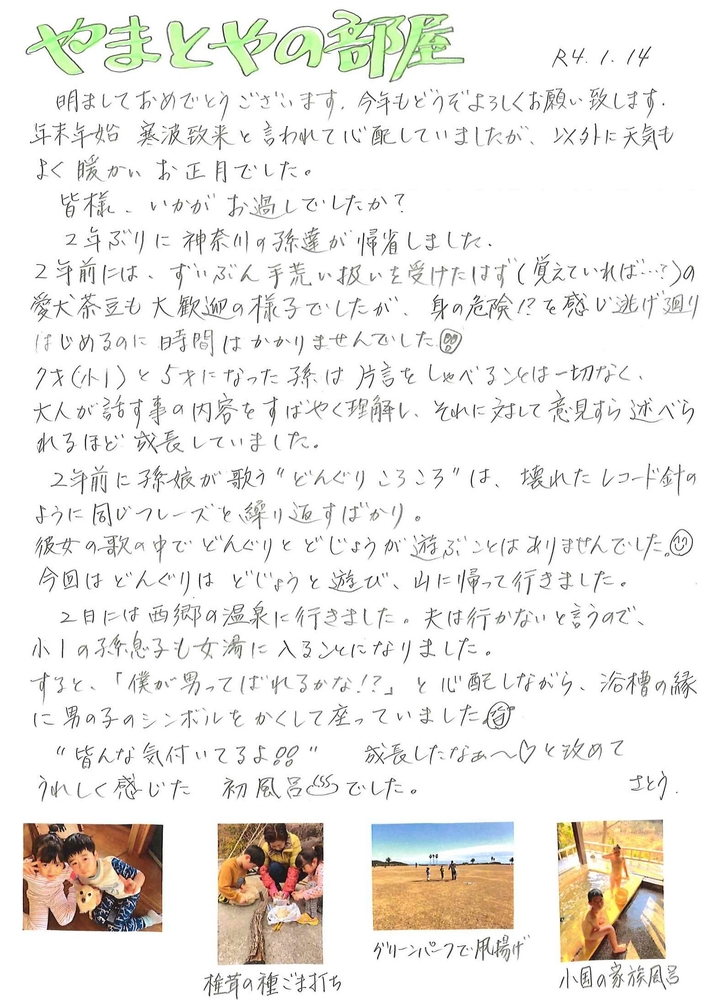 やまとやの部屋
R4.1.14
明ましておめでとうございます。今年もどうぞよろしくお願い致します。
年末年始 寒波致来と言われて心配していましたが、以外に天気も
よく暖かい お正月でした。
皆様、いかがお過しでしたか?
2年ぶりに神奈川の孫達が帰省しました。
2年前には、ずいぶん手荒い扱いを受けたはず(覚えていれば…?)の
愛犬茶豆も大歓迎の様子でしたが、身の危険!?を感じ逃げ廻り
はじめるのに時間はかかりませんでした
7才(小1)と5才になった孫は片言をしゃべることは一切なく、
大人が話す事の内容をすばやく理解し、それに対して意見すら述べら
れるほど成長していました。
2年前に孫娘が歌う"どんぐりころころ"は、壊れたレコード針の
ように同じフレーズを繰り返すばかり。
彼女の歌の中でどんぐりとどじょうが遊ぶことはありませんでした。
今回はどんぐりはどじょうと遊び、山に帰って行きました。
2日には西郷の温泉に行きました。夫は行かないと言うので、
小1の孫息子も女湯に入ることになりました。
すると、「僕が男ってばれるかな!?」と心配しながら、浴槽の縁
に男の子のシンボルをかくして座っていました
"皆んな気付いてるよ!!" 成長したなぁ〜♡と改めて
うれしく感じた 初風呂♨でした。
さとう.
椎茸の種ごま打ち
グリーンパークで凧揚げ
小国の家族風呂